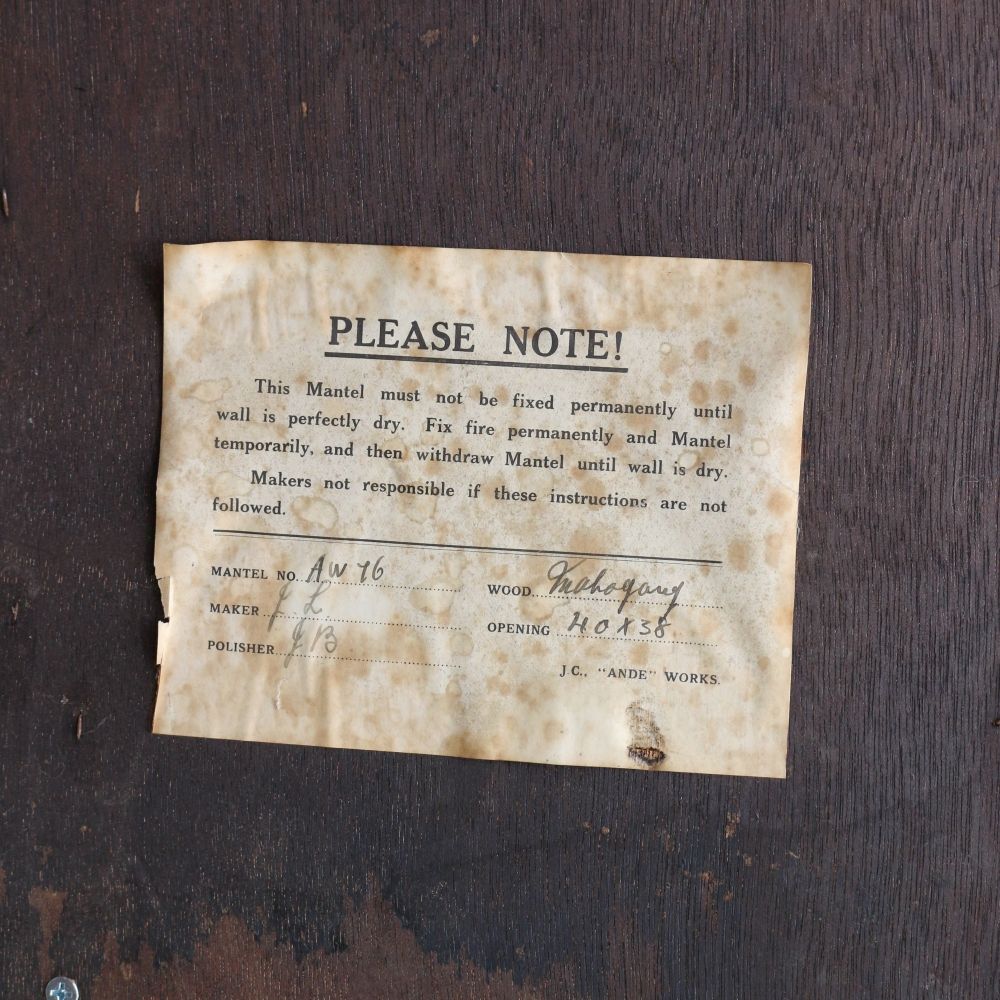 PLEASE NOTE!
This Mantel must not be fixed permanently until
wall is perfectly dry. Fix fire permanently and Mantel
temporarily, and then withdraw Mantel until wall is dry.
Makers not responsible if these instructions are not
followed.
MANTEL NO. AW 76
WOOD Mahogany
MAKER J L
OPENING 40 X 38
POLISHER J B
J.C., "ANDE" WORKS.